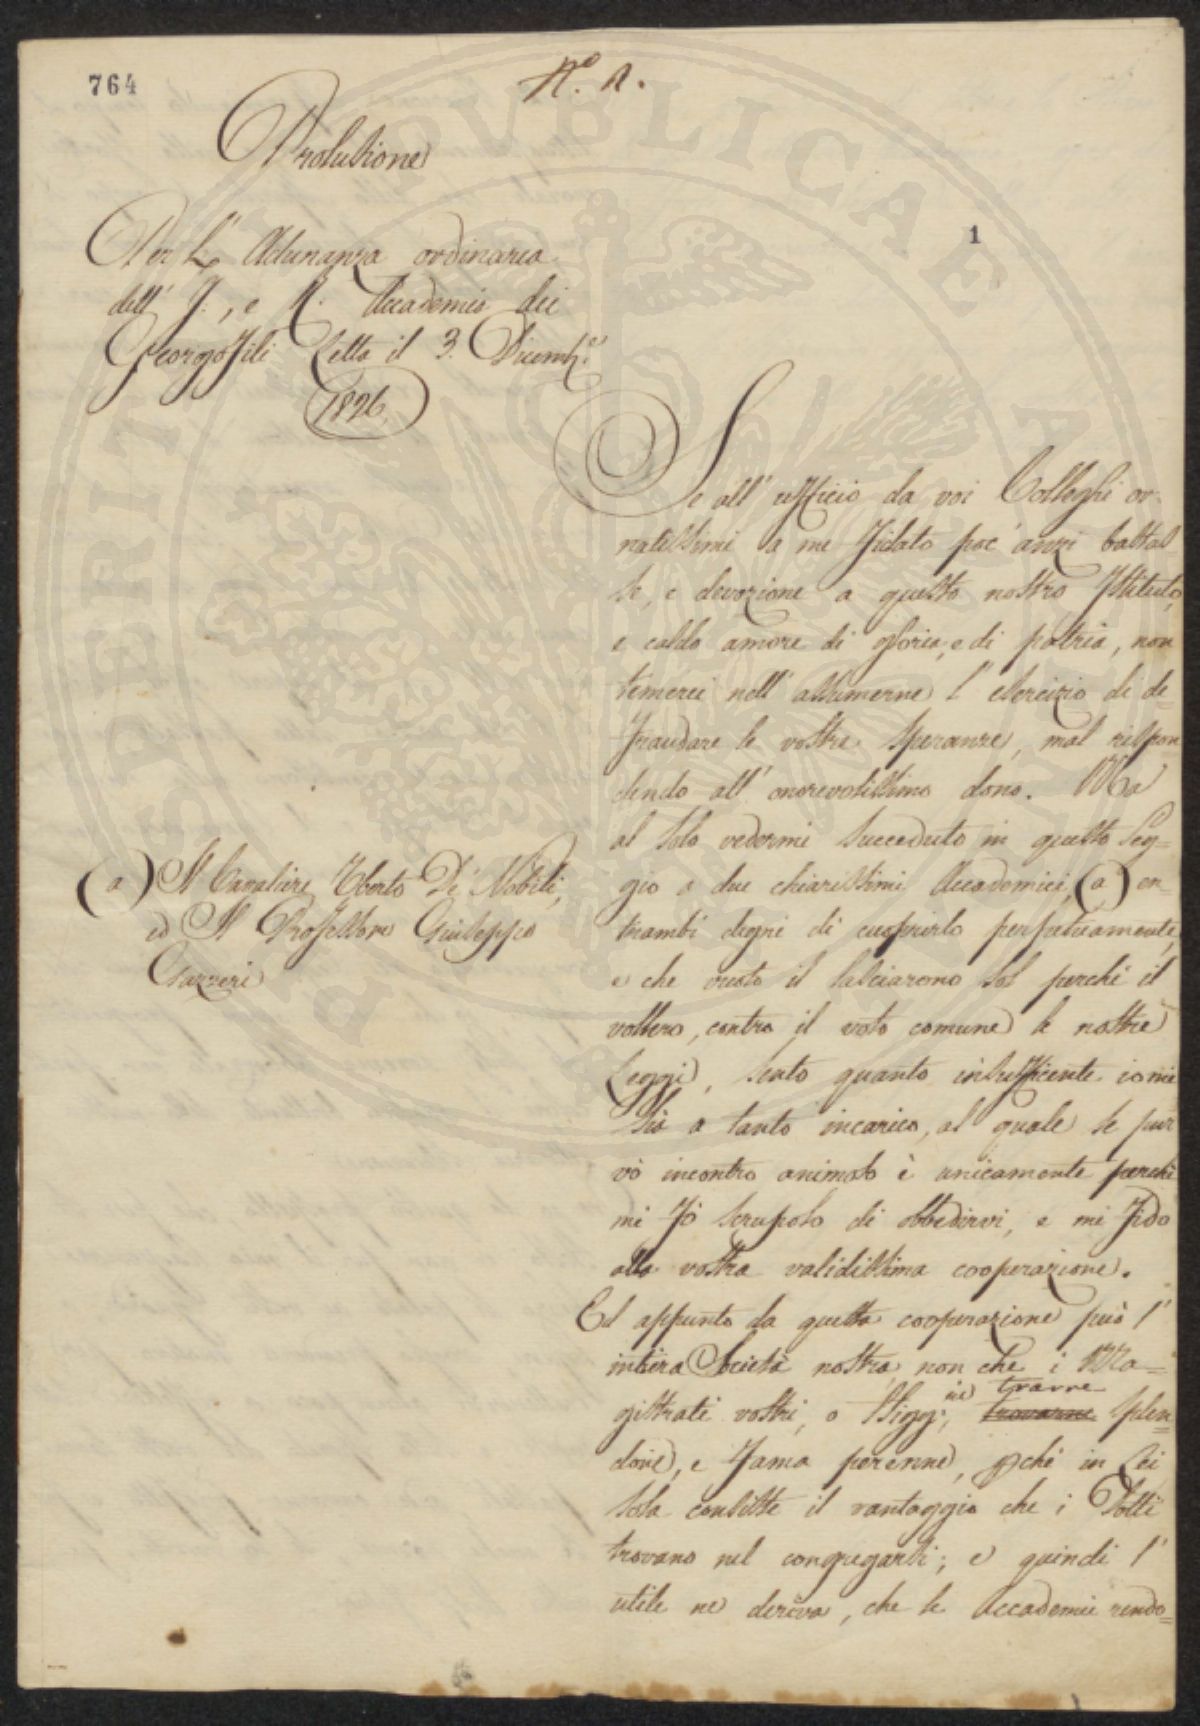 764
N.º 2.
Prolusione
1
Per L' Adunanza ordinaria
dell' I., e R. Accademia dei
Georgofili Letta il 3. Dicemb.e
1826.
Se all' ufficio da voi Colleghi or-
natissimi a me fidato poc' anzi bastas
se, e devozione a questo nostro Istituto,
e caldo amore di gloria, e di patria, non
temerei nell' assumerne l' esercizio di de=
fraudare le vostre speranze, mal rispon
dendo all' onorevolissimo dono. Ma
al solo vedermi succeduto in questo seg=
gio a due chiarissimi Accademici, (a) en
trambi degni di cuoprirlo perpetuamente,
e che vuoto il lasciarono sol perchè il
vollero, contro il voto comune le nostre
Leggi, sento quanto insufficente io mi
sia a tanto incarico, al quale se pur
vò incontro animoso è unicamente perchè
mi fò scrupolo di obbedirvi, e mi fido
alla vostra validissima cooperazione.
Ed appunto da questa cooperazione può l'
intiera Società nostra, non che i Ma=
gistrati vostri, o Sigg:, ne trarre splen=
dore, e fama perenne, pchè in Lei
sola consiste il vantaggio che i Dotti
trovano nel congregarsi; e quindi l'
utile ne deriva, che le Accademie rendo=
(a) Il Cavaliere Uberto De' Nobili,
ed Il Professore Giuseppe
Gazzeri
PROSPERITATI PUBLICAE AUGENDAE